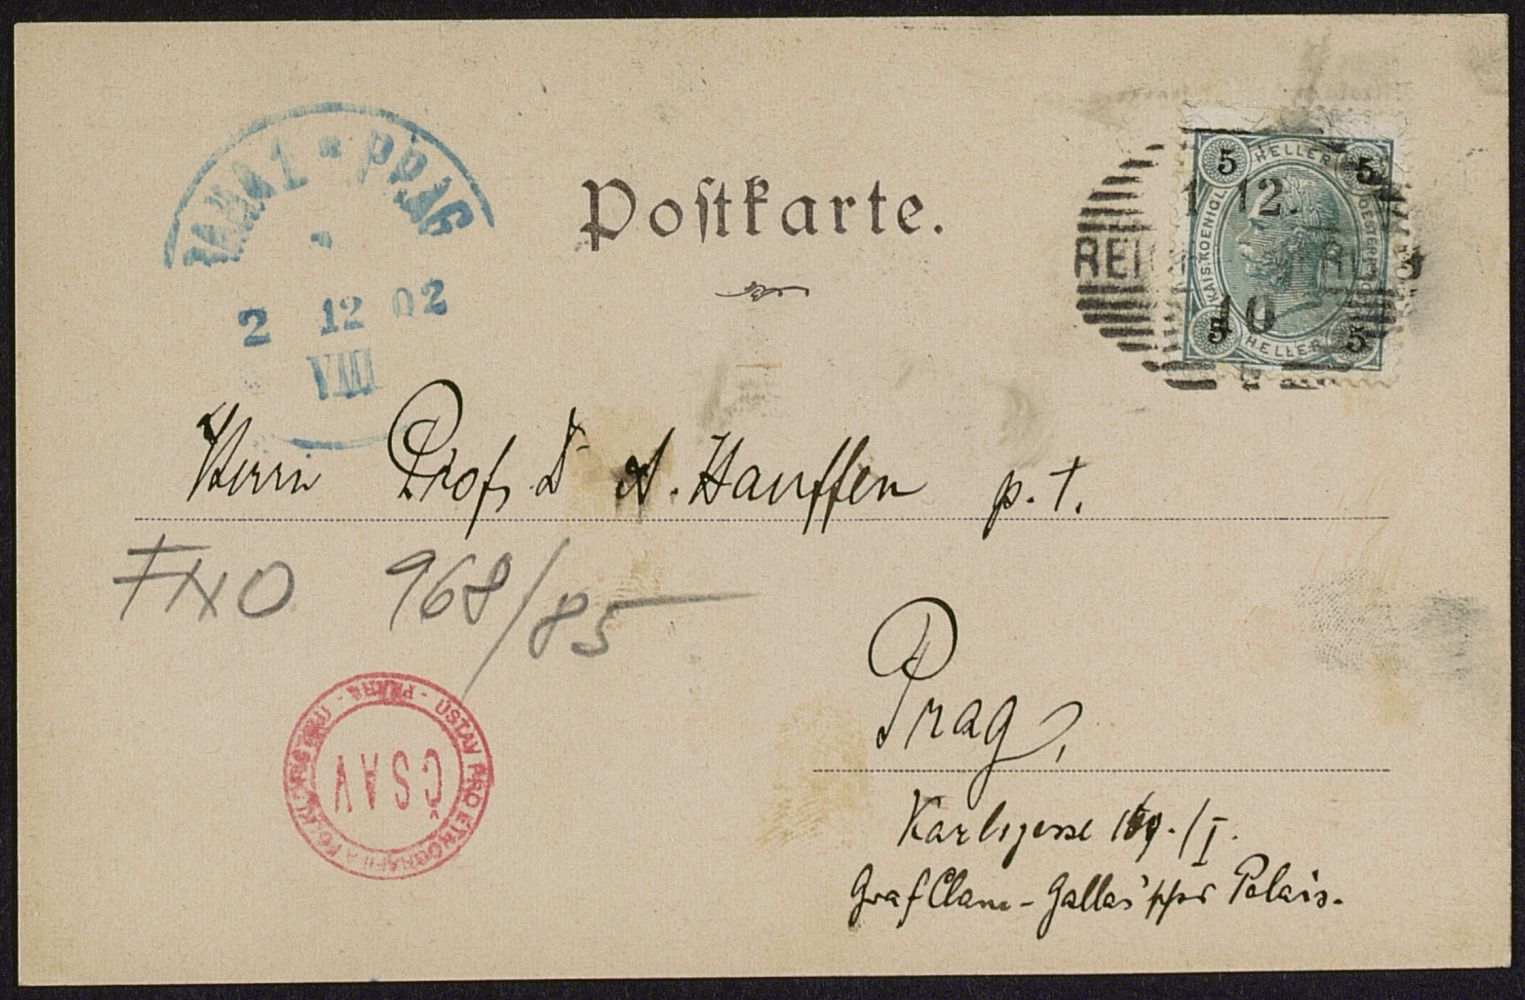 PRAHA 1 * PRAG
2 12 02
VIII
Postkarte.
HELLER
5 5
KAIS. KOENIGL.
1 12.
REI
10
5 5
HELLER
Herrn Prof. Dr A. Hauffen p. t.
FNO 968/85
Prag,
Karlsgasse 169./I.
Graf Clam-Gallas'sches Palais.
ÚSTAV PRO ETNOGRAFII A FOLKLORISTIKU - PRAHA -
ČSAV